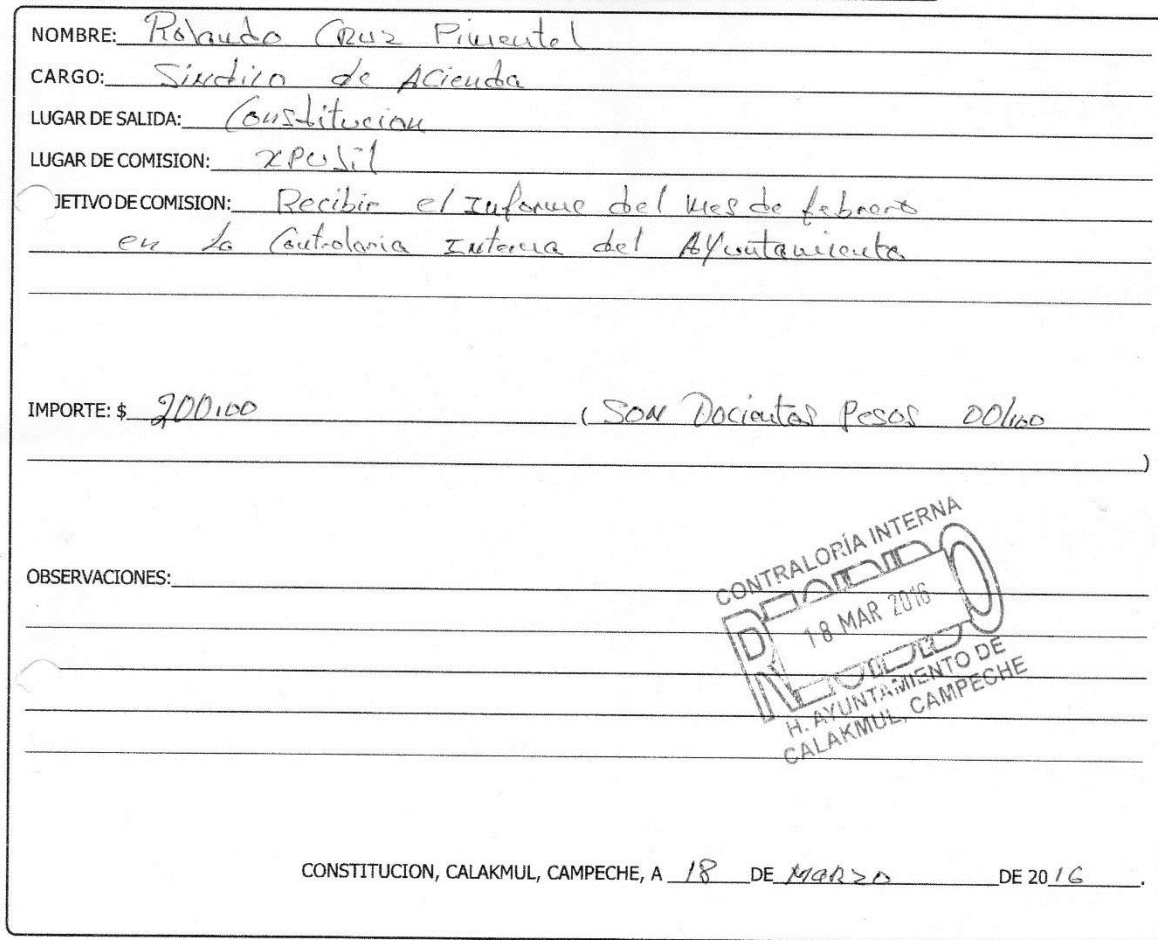 NOMBRE: Rolando CRUZ Pimentel
CARGO: Sindico de ACienda
LUGAR DE SALIDA: Constitucion
LUGAR DE COMISION: XPUJil
JETIVO DE COMISION: Recibir el Informe del mes de febrero
en La Contraloria Interna del AYuntamiento
IMPORTE: $ 200.00 ( SON Docientos Pesos 00/100
)
CONTRALORÍA INTERNA
OBSERVACIONES:
18 MAR 2016
H. AYUNTAMIENTO DE
CALAKMUL, CAMPECHE
CONSTITUCION, CALAKMUL, CAMPECHE, A 18 DE MARZO DE 2016.